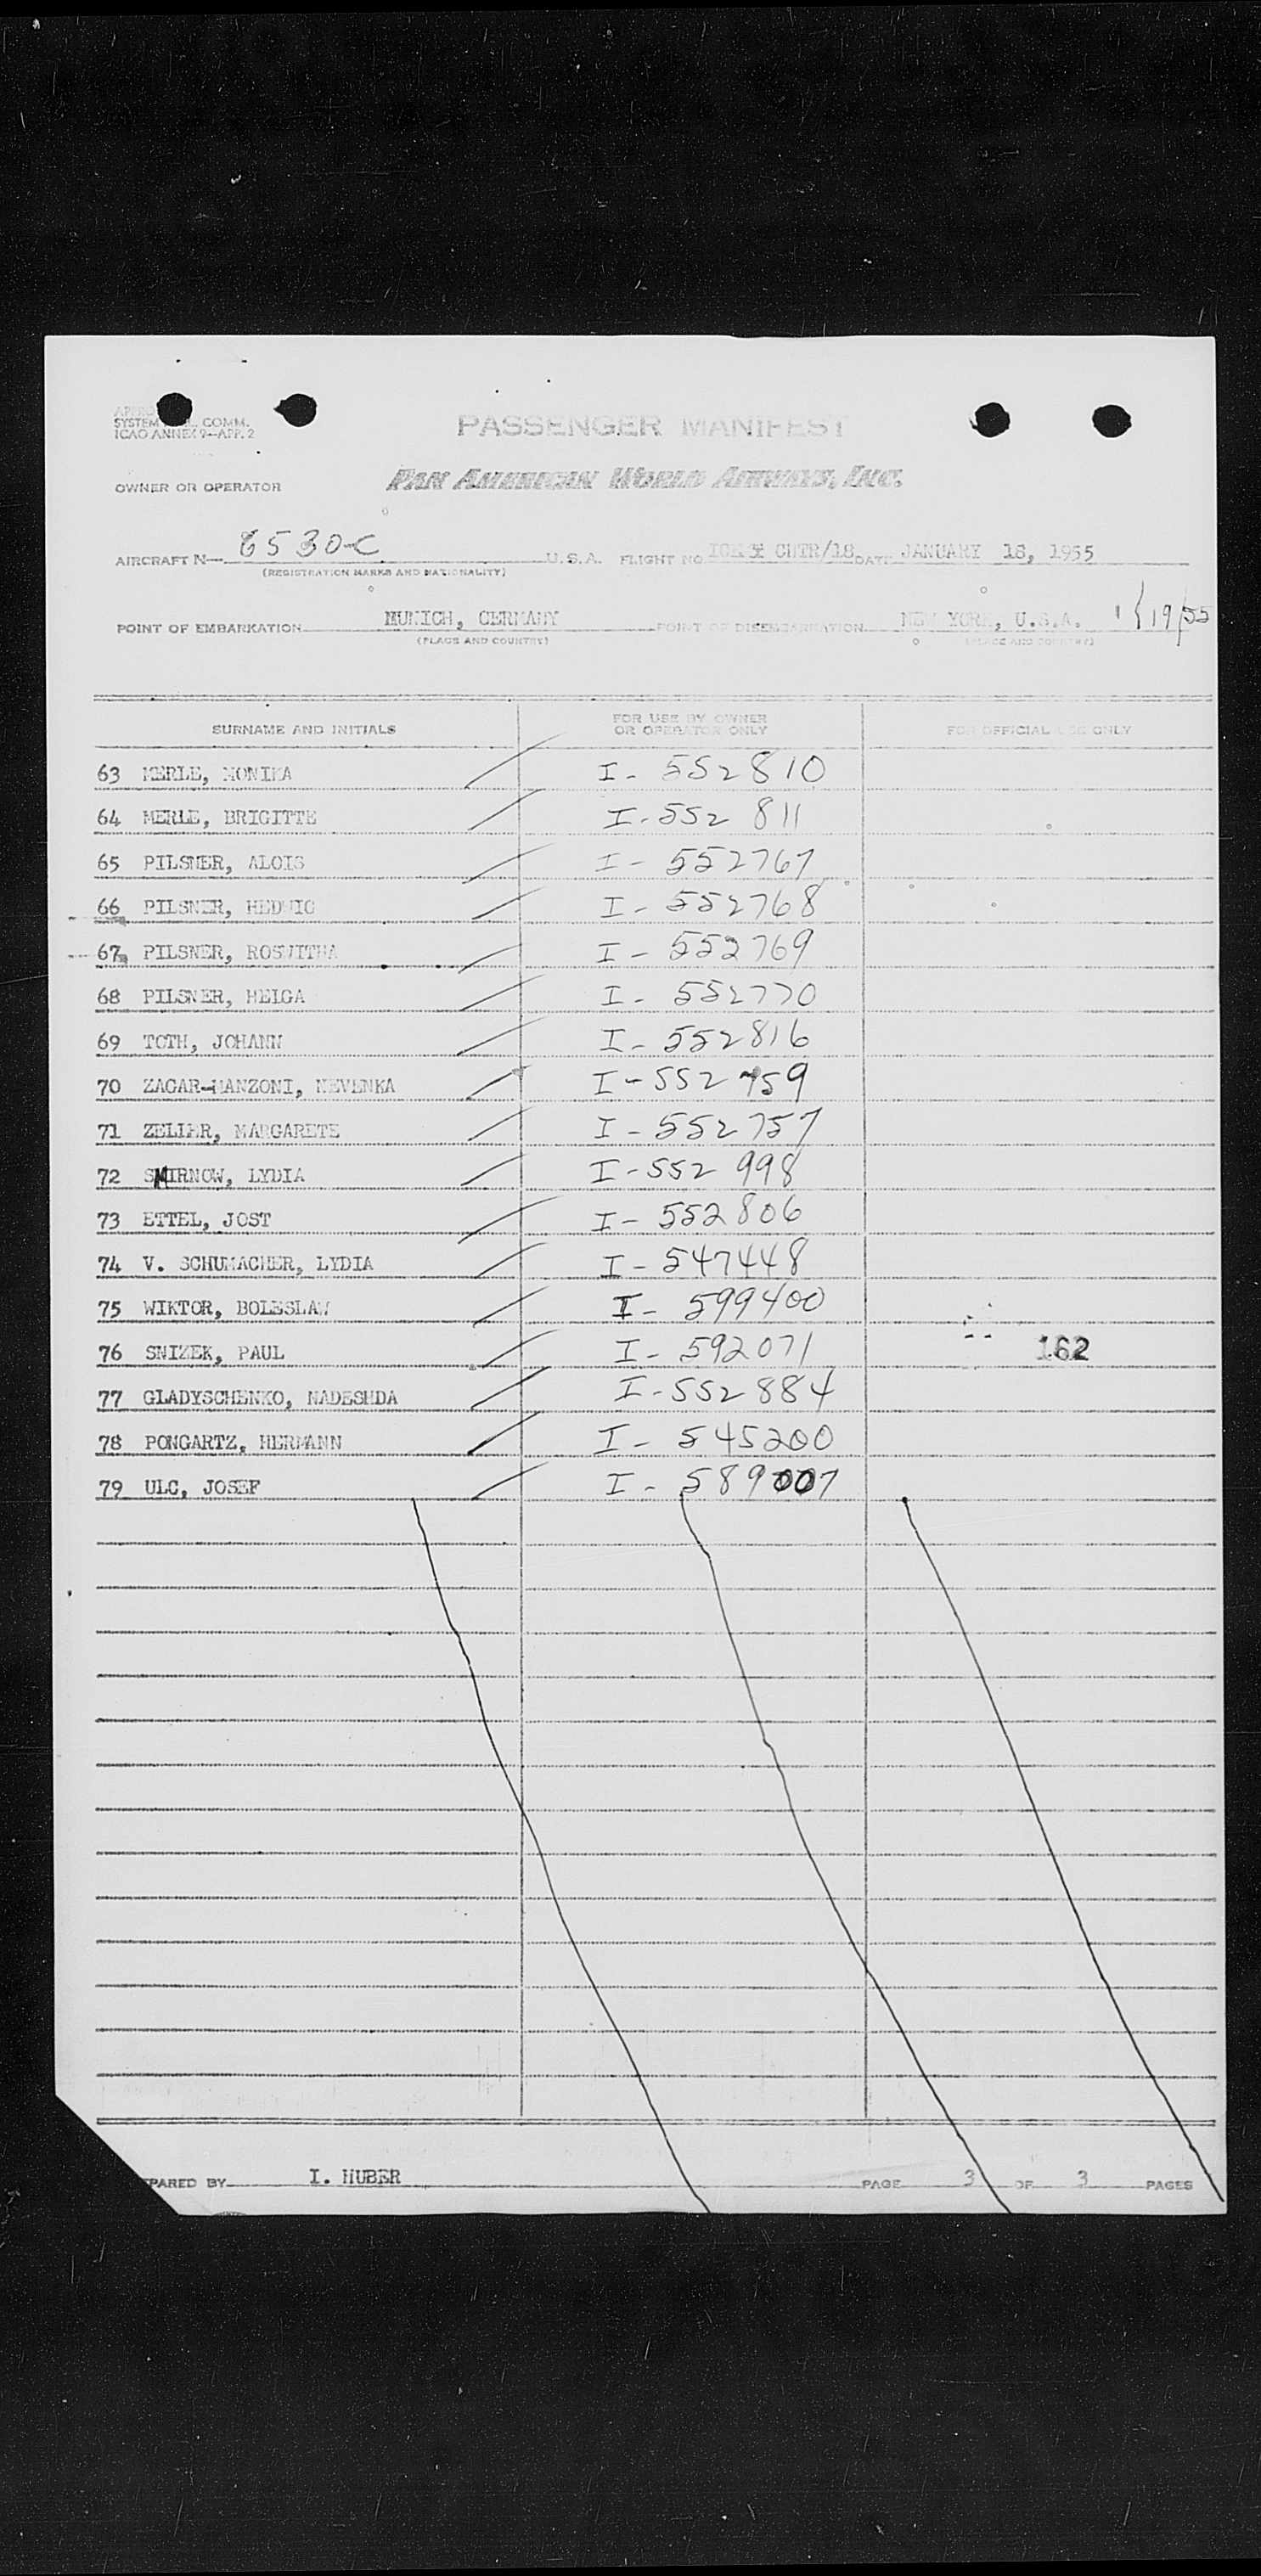 SYSTEM COMM.
ICAO ANNEX 9—APP. 2
PASSENGER MANIFEST
OWNER OR OPERATOR PAN AMERICAN WORLD AIRWAYS, INC.
AIRCRAFT N— 6530-C U.S.A. FLIGHT NO. CHTR/18 DATE JANUARY 18, 1955
(REGISTRATION MARKS AND NATIONALITY)
POINT OF EMBARKATION MUNICH, GERMANY POINT OF DISEMBARKATION NEW YORK, U.S.A. 1/19/55
(PLACE AND COUNTRY) (PLACE AND COUNTRY)
SURNAME AND INITIALS FOR USE BY OWNER OR OPERATOR ONLY FOR OFFICIAL USE ONLY
63 MERLE, MONIKA I - 552810
64 MERLE, BRIGITTE I - 552 811
65 PILSNER, ALOIS I - 552767
66 PILSNER, HEDWIG I - 552768
67 PILSNER, ROSWITHA I - 552769
68 PILSNER, HELGA I - 552770
69 TOTH, JOHANN I - 552816
70 ZAGAR-MANZONI, NEVENKA I - 552 959
71 ZELIER, MARGARETE I - 552757
72 SMIRNOW, LYDIA I - 552 998
73 ETTEL, JOST I - 552806
74 V. SCHUMACHER, LYDIA I - 547448
75 WIKTOR, BOLESLAW I - 599400
76 SNIZEK, PAUL I - 592071 162
77 GLADYSCHENKO, NADESHDA I - 552884
78 PONGARTZ, HERMANN I - 545200
79 ULC, JOSEF I - 589007
PARED BY I. HUBER PAGE 3 OF 3 PAGES